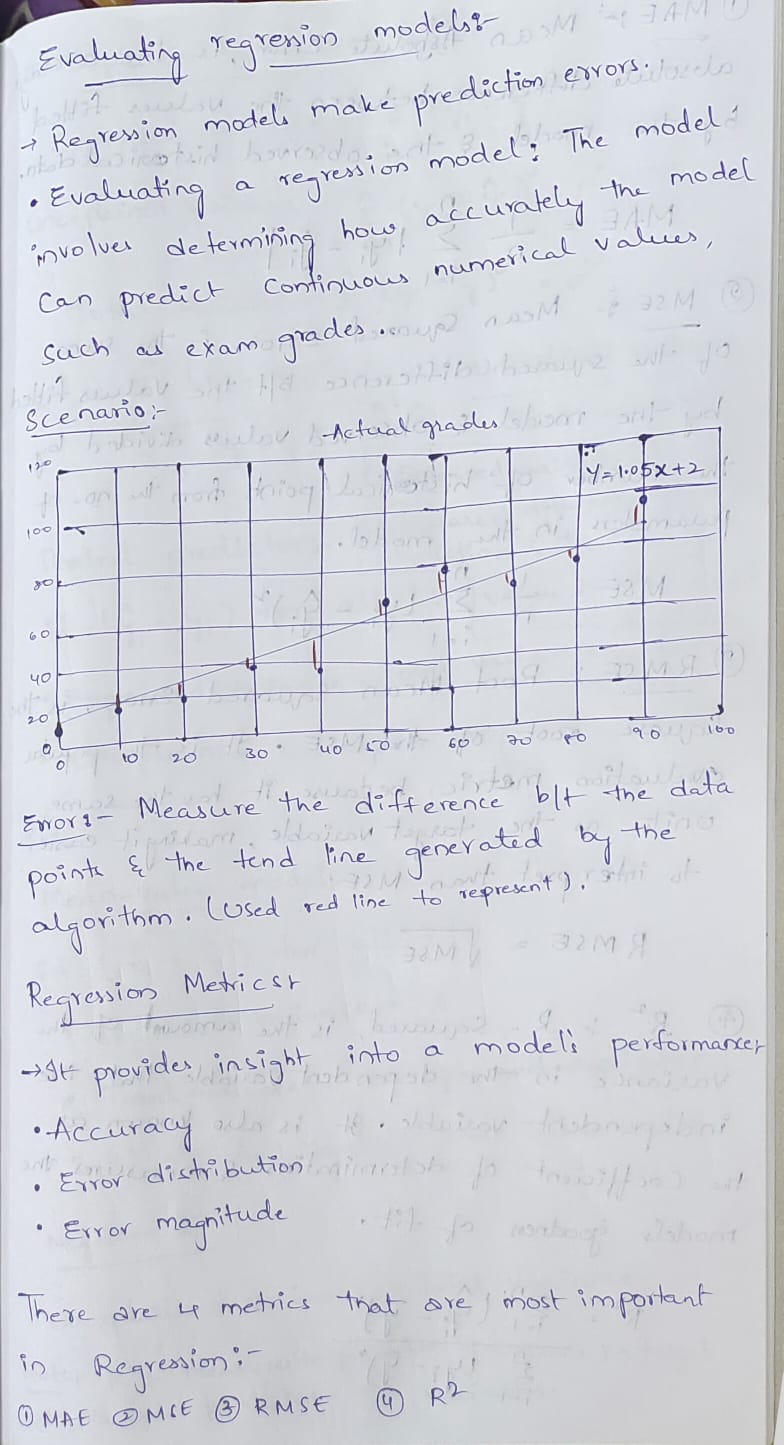 Evaluating regression models:-
→ Regression models make prediction errors.
• Evaluating a regression model: The model
involves determining how accurately the model
can predict continuous numerical values,
such as exam grades.
Scenario:-
Actual grades
120
Y=1.05x+2
100
80
60
40
20
0
0 10 20 30 40 50 60 70 80 90 100
Error:- Measure the difference b/t the data
points & the tend line generated by the
algorithm. (Used red line to represent).
Regression Metrics:-
→It provides insight into a model's performance,
• Accuracy
• Error distribution
• Error magnitude
There are 4 metrics that are most important
in Regression:-
① MAE ② MSE ③ RMSE ④ R²